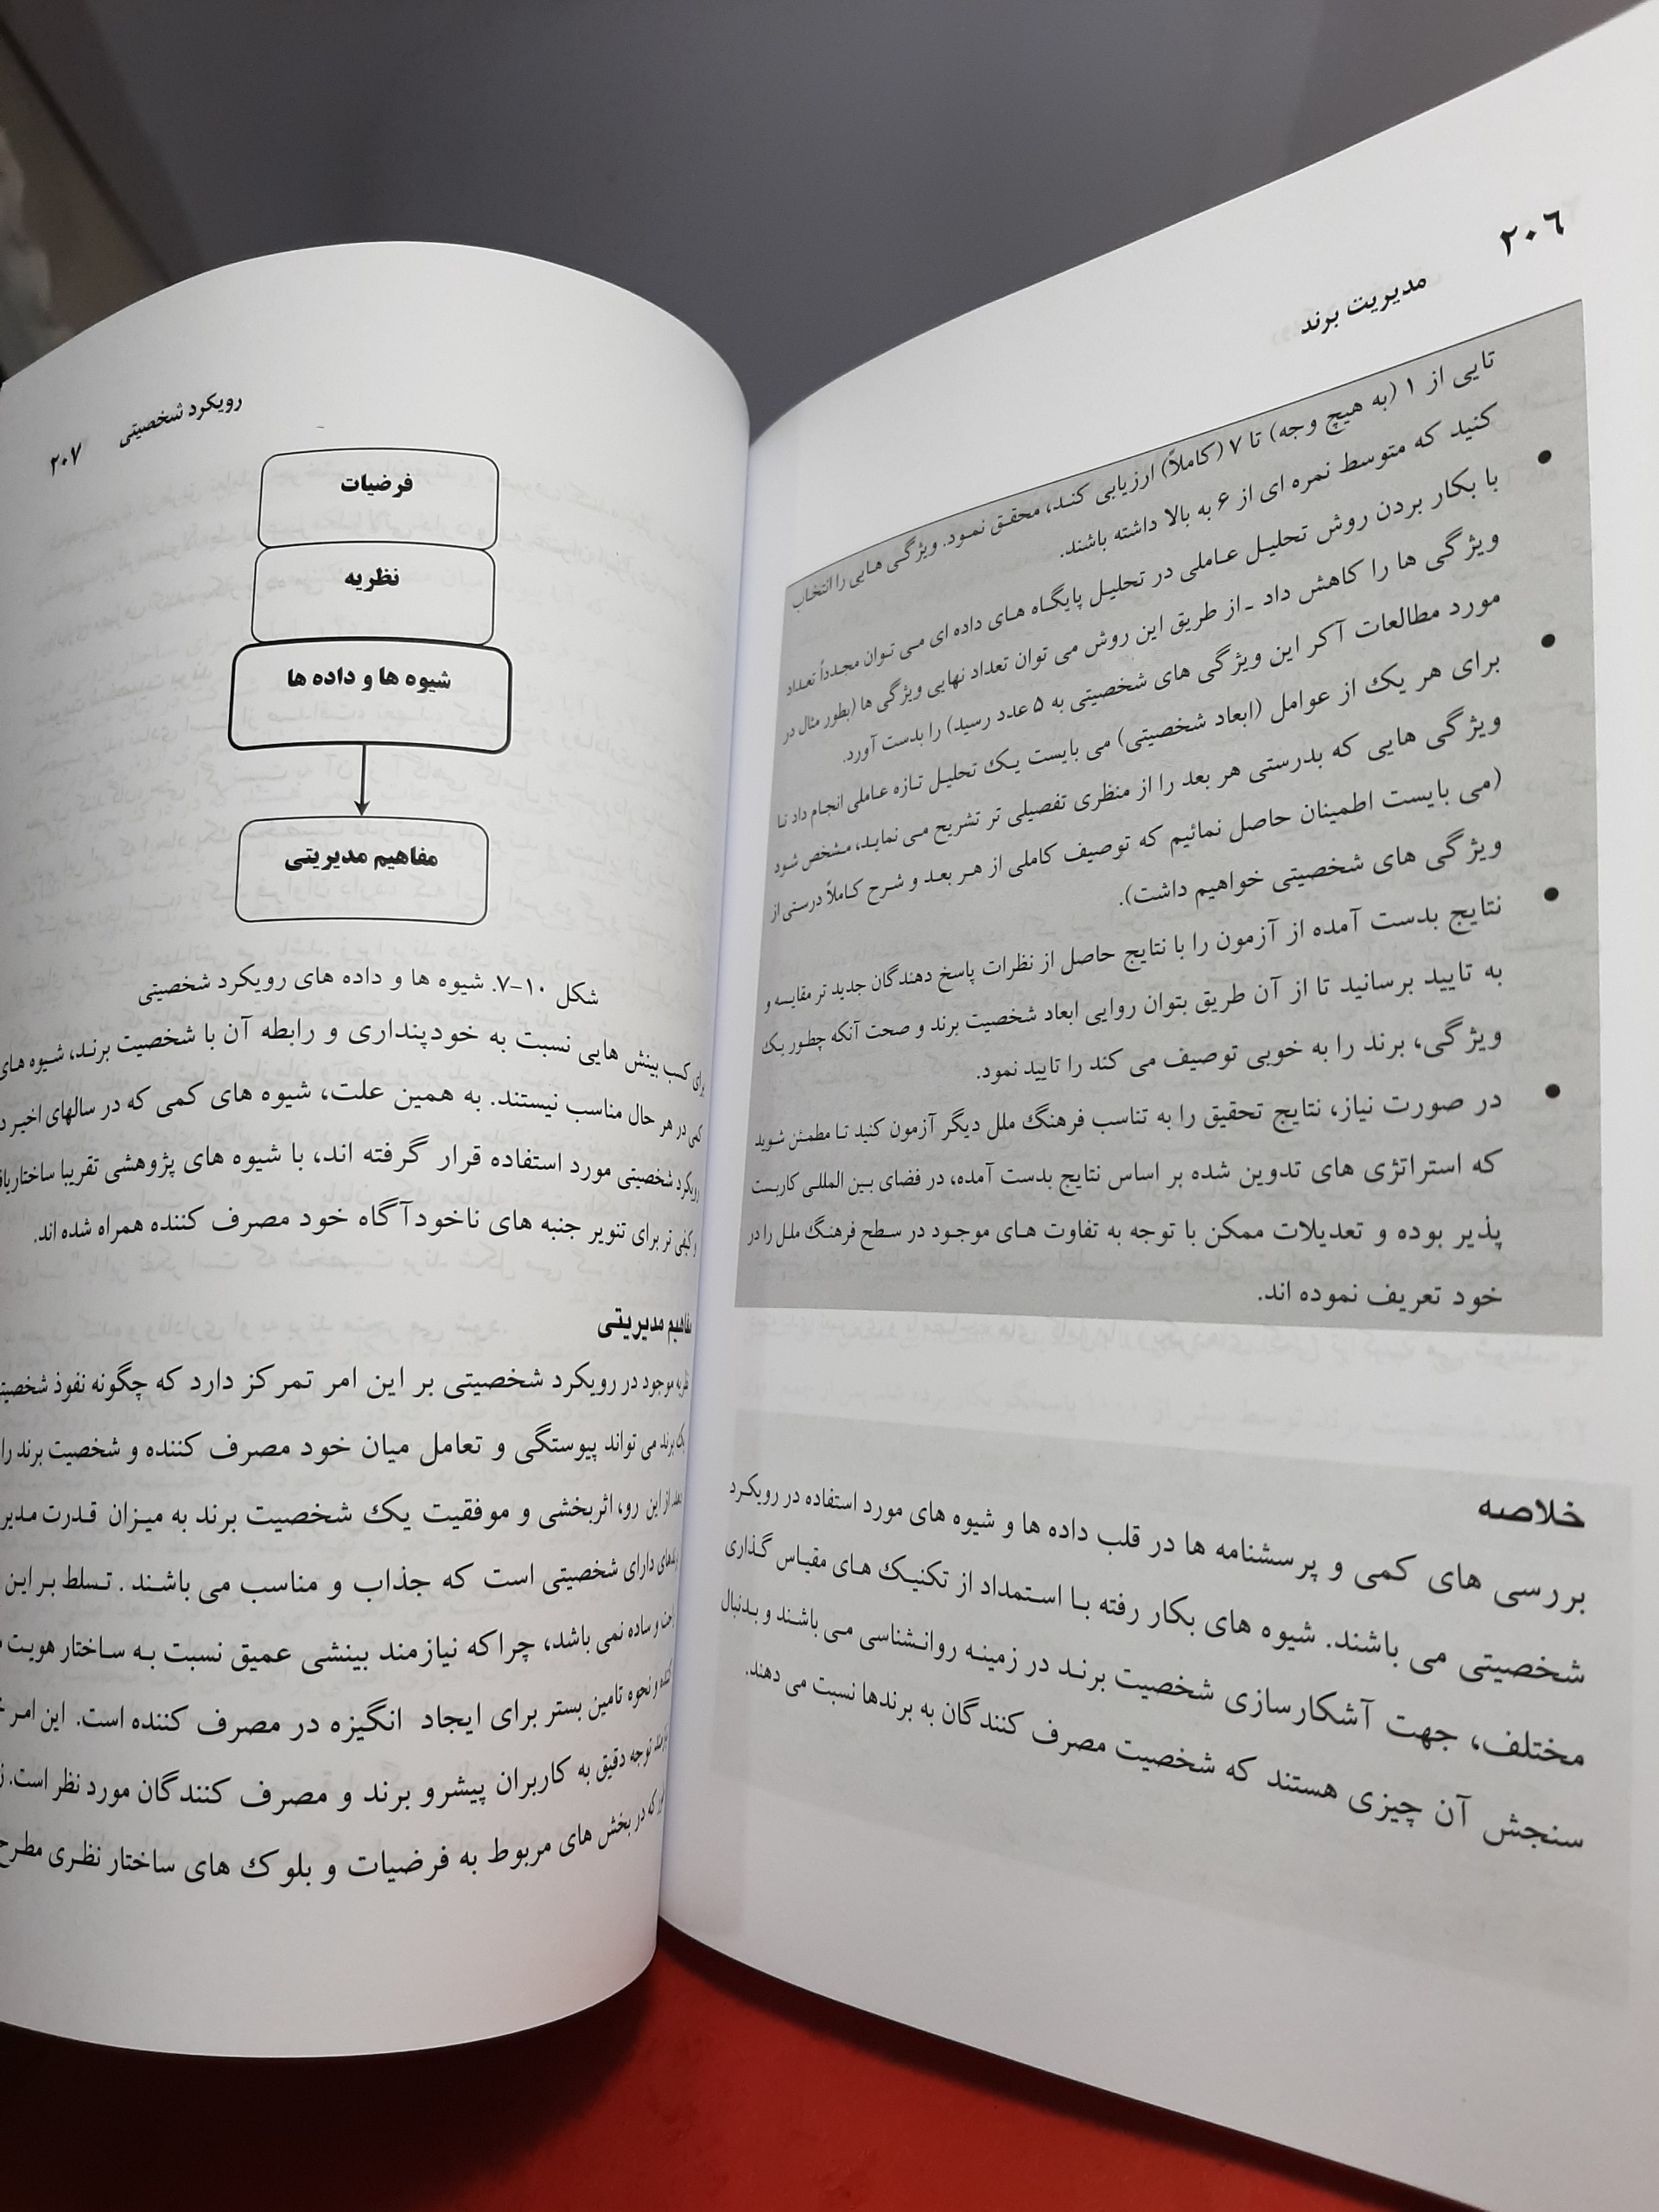 ۲۰۶
مدیریت برند
تایی از ۱ (به هیچ وجه) تا ۷ (کاملاً) ارزیابی کند، محقق نمود. ویژگی هایی را انتخاب
کنید که متوسط نمره ای از ۶ به بالا داشته باشند.
• با بکار بردن روش تحلیل عاملی در تحلیل پایگاه های داده ای می توان مجدداً تعداد
ویژگی ها را کاهش داد - از طریق این روش می توان تعداد نهایی ویژگی ها (بطور مثال در
مورد مطالعات آکر این ویژگی های شخصیتی به ۵ عدد رسید) را بدست آورد.
• برای هر یک از عوامل (ابعاد شخصیتی) می بایست یک تحلیل تازه عاملی انجام داد تا
ویژگی هایی که بدرستی هر بعد را از منظری تفصیلی تر تشریح می نماید، مشخص شود
(می بایست اطمینان حاصل نمائیم که توصیف کاملی از هر بعد و شرح کاملاً درستی از
ویژگی های شخصیتی خواهیم داشت).
• نتایج بدست آمده از آزمون را با نتایج حاصل از نظرات پاسخ دهندگان جدید تر مقایسه و
به تایید برسانید تا از آن طریق بتوان روایی ابعاد شخصیت برند و صحت آنکه چطور یک
ویژگی، برند را به خوبی توصیف می کند را تایید نمود.
• در صورت نیاز، نتایج تحقیق را به تناسب فرهنگ ملل دیگر آزمون کنید تا مطمئن شوید
که استراتژی های تدوین شده بر اساس نتایج بدست آمده، در فضای بین المللی کاربست
پذیر بوده و تعدیلات ممکن با توجه به تفاوت های موجود در سطح فرهنگ ملل را در
خود تعریف نموده اند.
خلاصه
بررسی های کمی و پرسشنامه ها در قلب داده ها و شیوه های مورد استفاده در رویکرد
شخصیتی می باشند. شیوه های بکار رفته با استمداد از تکنیک های مقیاس گذاری
مختلف، جهت آشکارسازی شخصیت برند در زمینه روانشناسی می باشند و بدنبال
سنجش آن چیزی هستند که شخصیت مصرف کنندگان به برندها نسبت می دهند.
رویکرد شخصیتی ۲۰۷
فرضیات
نظریه
شیوه ها و داده ها
مفاهیم مدیریتی
شکل ۱۰-۷. شیوه ها و داده های رویکرد شخصیتی
برای کسب بینش هایی نسبت به خودپنداری و رابطه آن با شخصیت برند، شیوه های
کمی در هر حال مناسب نیستند. به همین علت، شیوه های کمی که در سالهای اخیر
رویکرد شخصیتی مورد استفاده قرار گرفته اند، با شیوه های پژوهشی تقریبا
و کیفی تر برای تنویر جنبه های ناخودآگاه خود مصرف کننده همراه شده اند.
مفاهیم مدیریتی
نظریه موجود در رویکرد شخصیتی بر این امر تمرکز دارد که چگونه نفوذ
یک برند می تواند پیوستگی و تعامل میان خود مصرف کننده و شخصیت برند را
از این رو، اثربخشی و موفقیت یک شخصیت برند به میزان قدرت
دارای شخصیتی است که جذاب و مناسب می باشند. تسلط بر این
و ساده نمی باشد، چراکه نیازمند بینشی عمیق نسبت به ساختار هویت
و نحوه تامین بستر برای ایجاد انگیزه در مصرف کننده است. این امر
توجه دقیق به کاربران پیشرو برند و مصرف کنندگان مورد نظر است.
که در بخش های مربوط به فرضیات و بلوک های ساختار نظری مطرح